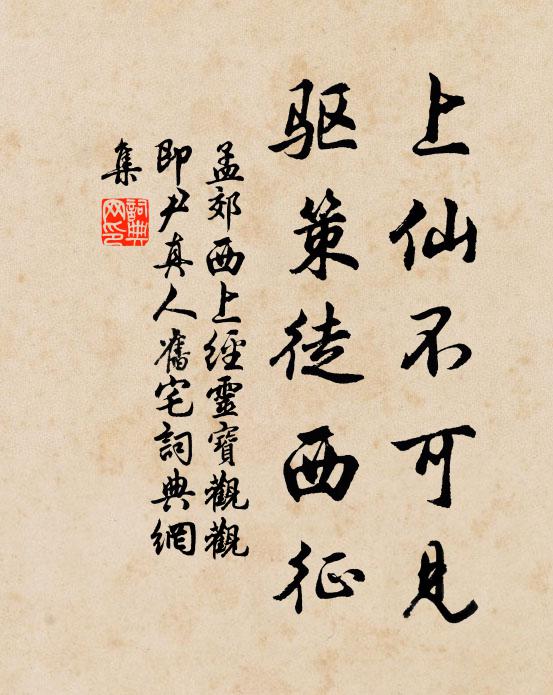 上仙不可見
驱策徒西征
孟郊西上經靈寶觀觀
即尹真人舊宅詞典網
集
詞典網印